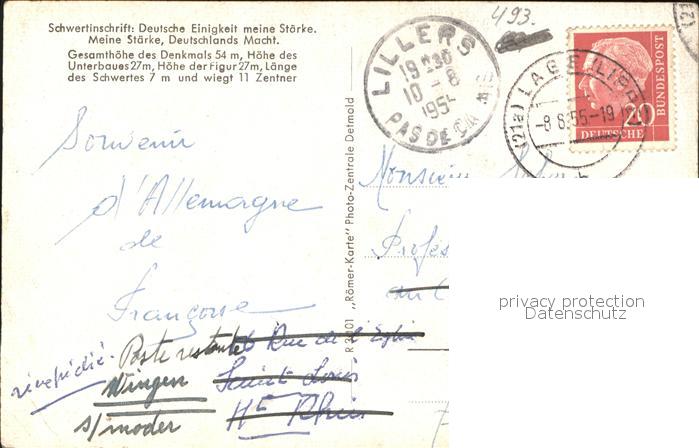 Schwertinschrift: Deutsche Einigkeit meine Stärke.
Meine Stärke, Deutschlands Macht.
Gesamthöhe des Denkmals 54 m, Höhe des
Unterbaues 27m, Höhe der Figur 27m, Länge
des Schwertes 7 m und wiegt 11 Zentner
493.
LILLERS
19 H 30
10 - 8
195
PAS DE CALAIS
(21a) LAGE (LIPPE)
-8.8.55-19
20
DEUTSCHE
BUNDESPOST
Souvenir
d'Allemagne
de
Françoise
"Römer-Karte" Photo-Zentrale Detmold
Monsieur
Profes
privacy protection
Datenschutz
Rue de l'Eglise
Poste restante
Saint Louis
Wingen
Ht Rhin
s/moder